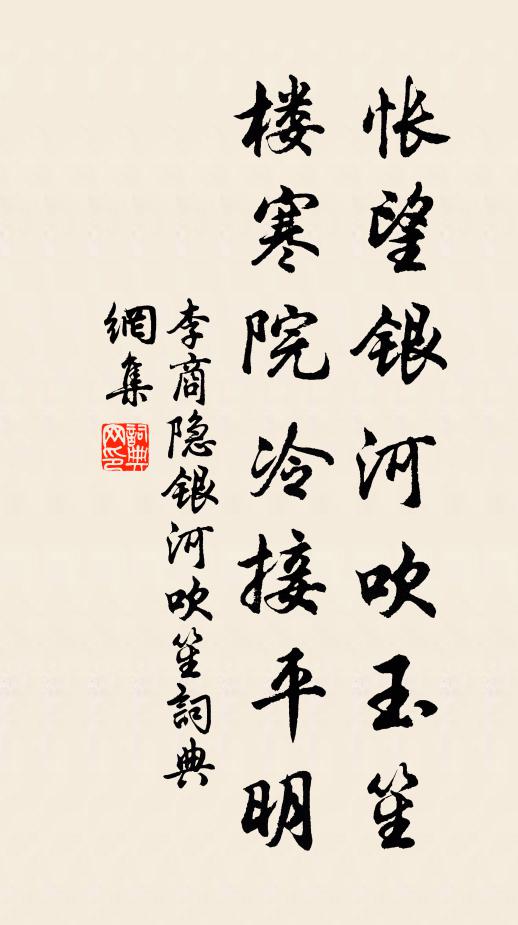 怅望银河吹玉笙
楼寒院冷接平明
李商隐银河吹笙詞典
網集
詞典
网印